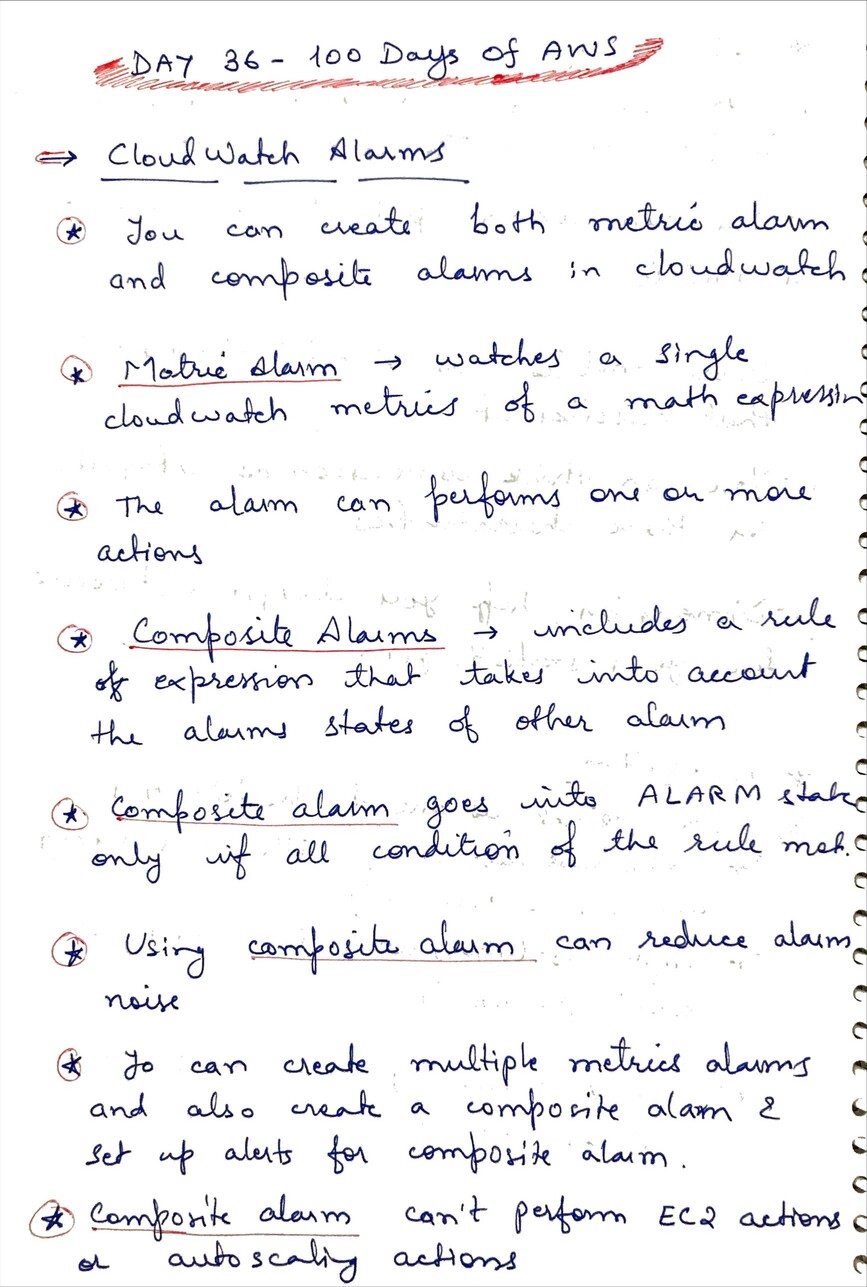 DAY 36 - 100 Days of AWS
⇒ CloudWatch Alarms
You can create both metric alarm
and composite alarms in cloudwatch
Matric Alarm → watches a single
cloudwatch metrics of a math expression
The alarm can performs one or more
actions
Composite Alarms → includes a rule
of expression that takes into account
the alarms states of other alarm
Composite alarm goes into ALARM state
only if all condition of the rule met.
Using composite alarm can reduce alarm
noise
Yo can create multiple metrics alarms
and also create a composite alarm &
set up alerts for composite alarm.
Composite alarm can't perform EC2 actions
or autoscaling actions